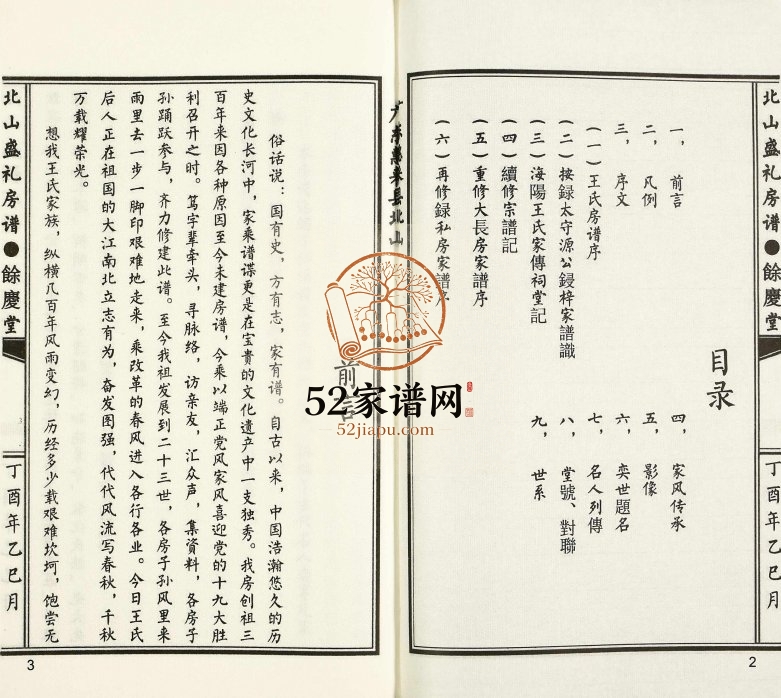 北山盛礼房谱●餘慶堂
丁酉年乙巳月
目录
一、前言
二、凡例
三、序文
(一)王氏房谱序
(二)按録太守源公鋟梓家譜識
(三)海陽王氏家傳祠堂記
(四)續修宗譜記
(五)重修大長房家譜序
(六)再修録私房家譜序
四、家风传承
五、影像
六、奕世題名
七、名人列傳
八、堂號、對聯
九、世系
2
广东惠来县北山
前言
俗话说：国有史，方有志，家有谱。自古以来，中国浩瀚悠久的历
史文化长河中，家乘谱谍更是在宝贵的文化遗产中一支独秀。我房创祖三
百年来因各种原因至今未建房谱，今乘以端正党风家风喜迎党的十九大胜
利召开之时。笃字辈牵头，寻脉络，访亲友，汇众声，集资料，各房子
孙踊跃参与，齐力修建此谱。至今我祖发展到二十三世，各房子孙风里来
雨里去一步一脚印艰难地走来，乘改革的春风进入各行各业。今日王氏
后人正在祖国的大江南北立志有为，奋发图强，代代风流写春秋，千秋
万载耀荣光。
想我王氏家族，纵横几百年风雨变幻，历经多少载艰难坎坷，饱尝无
北山盛礼房谱●餘慶堂
丁酉年乙巳月
3
52家谱网
52jiapu.com